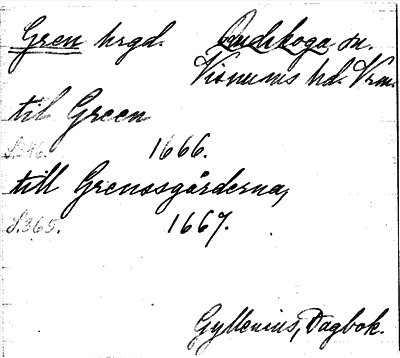 Gren hrgd. Rudskoga sn.
Visnums hd. Vrm.
till Green
S. 346. 1666.
till Grenssgårderna,
S. 365. 1667.
Gyllenius, Dagbok.